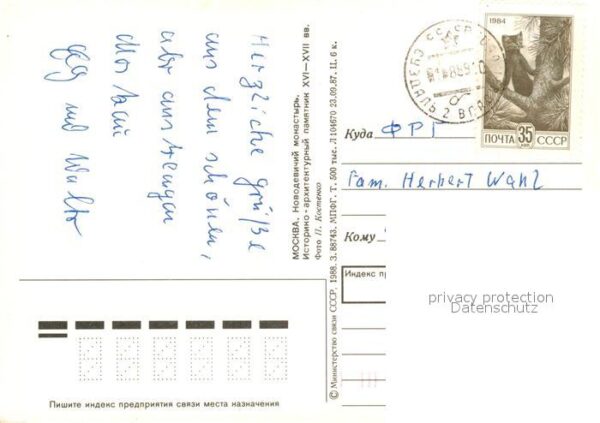 Herzliche Grüße
aus dem schönen,
aber anstrengen
Moskau
und Walter
МОСКВА. Новодевичий монастырь.
Историко-архитектурный памятник XVI—XVII вв.
Фото П. Костенко
© Министерство связи СССР, 1988. З. 88743. МПФГ. Т. 500 тыс. Л 104670 23.09.87. Ц. 6 к.
1984
ПОЧТА 35 СССР
Куда ФРГ
Fam. Herbert Wahl
Кому
Индекс пр
privacy protection
Datenschutz
Пишите индекс предприятия связи места назначения